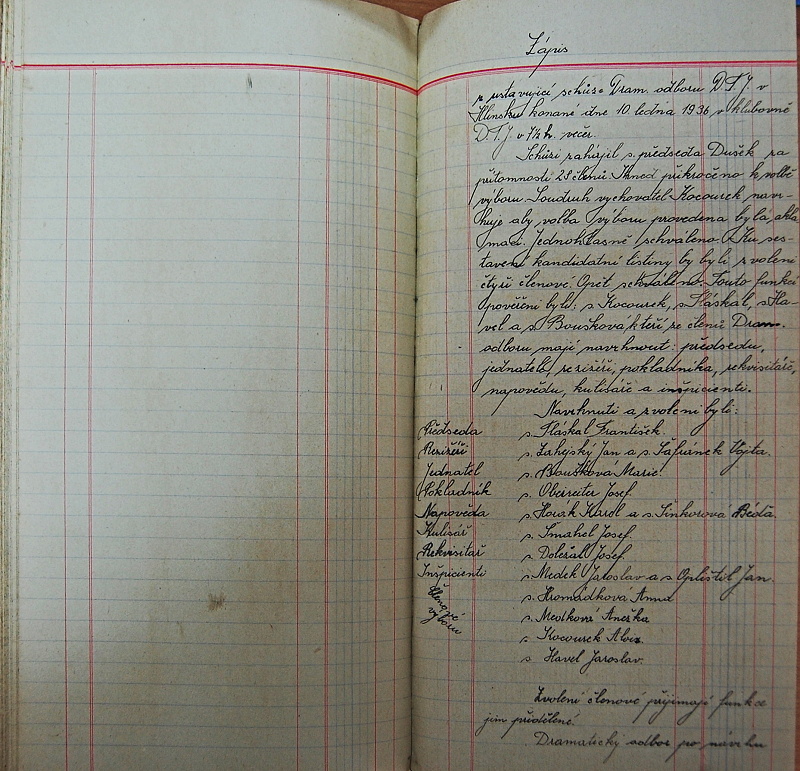 Zápis
z ustavující schůze Dram. odboru D.T.J. v
Hlinsku konané dne 10. ledna 1936 v klubovně
D.T.J. v 7½ h. večer.
Schůzi zahájil s. předseda Dušek za
přítomnosti 28 členů. Ihned přikročeno k volbě
výboru. Soudruh vychovatel Kocourek navr-
huje aby volba výboru provedena byla akla
mací. Jednohlasně schváleno. Ku ses-
tavení kandidátní listiny by byli zvoleni
čtyři členové. Opět schváleno. Touto funkcí
pověřeni byli: s. Kocourek, s. Sláskal, s. Ha-
vel a s. Boušková kteří ze členů Dram.
odboru mají navrhnout: předsedu,
jednatele, režiséři, pokladníka, rekvisitáře,
napovědu, kulisáře a inspicienti.
Navrhnuti a zvoleni byli:
Předseda s. Sláskal František.
Režiséři s. Zahejský Jan a s. Šafránek Vojta.
Jednatel s. Boušková Marie.
Pokladník s. Oberreiter Josef.
Napověda s. Horák Karel a s. Šinkorová Béďa.
Kulisář s. Smahel Josef.
Rekvisitář s. Doležal Josef.
Inšpicienti s. Medek Jaroslav a s. Oplištil Jan.
členové výboru s. Hromádková Anna
s. Medková Anežka
s. Kocourek Alois.
s. Havel Jaroslav.
Zvolení členové přijímají funkce
jim přidělené.
Dramatický odbor po návrhu